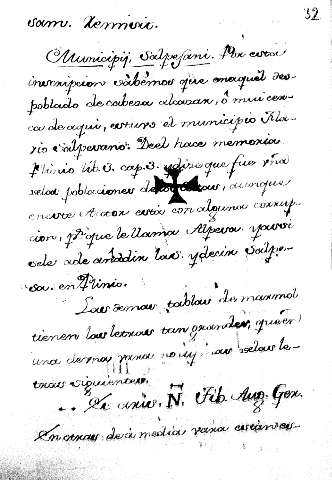 32
sam. Xemisit.
Municipij Salpesani. Por esta
inscripcion sabemos que enaquel des-
poblado de cabeza alcazar, ò mui cer-
ca de aqui, estuvo el municipio Fla-
vio Salpesano. Deel hace memoria
Plinio lib. 3. cap. 3. y dize que fue vna
delas poblaciones de aunque
en este Autor está con alguna corrup-
cion, pr. que le llama Alpesa y assi
sele a de añadir la s. y decir Salpe-
sa. en Plinio.
Las demas tablas de marmol
tienen las letras tan grandes, que en
una de vna vara no ay mas delas le-
tras siguientes.
N. Tib. Aug. Ger.
En otras de à media vara estan es-